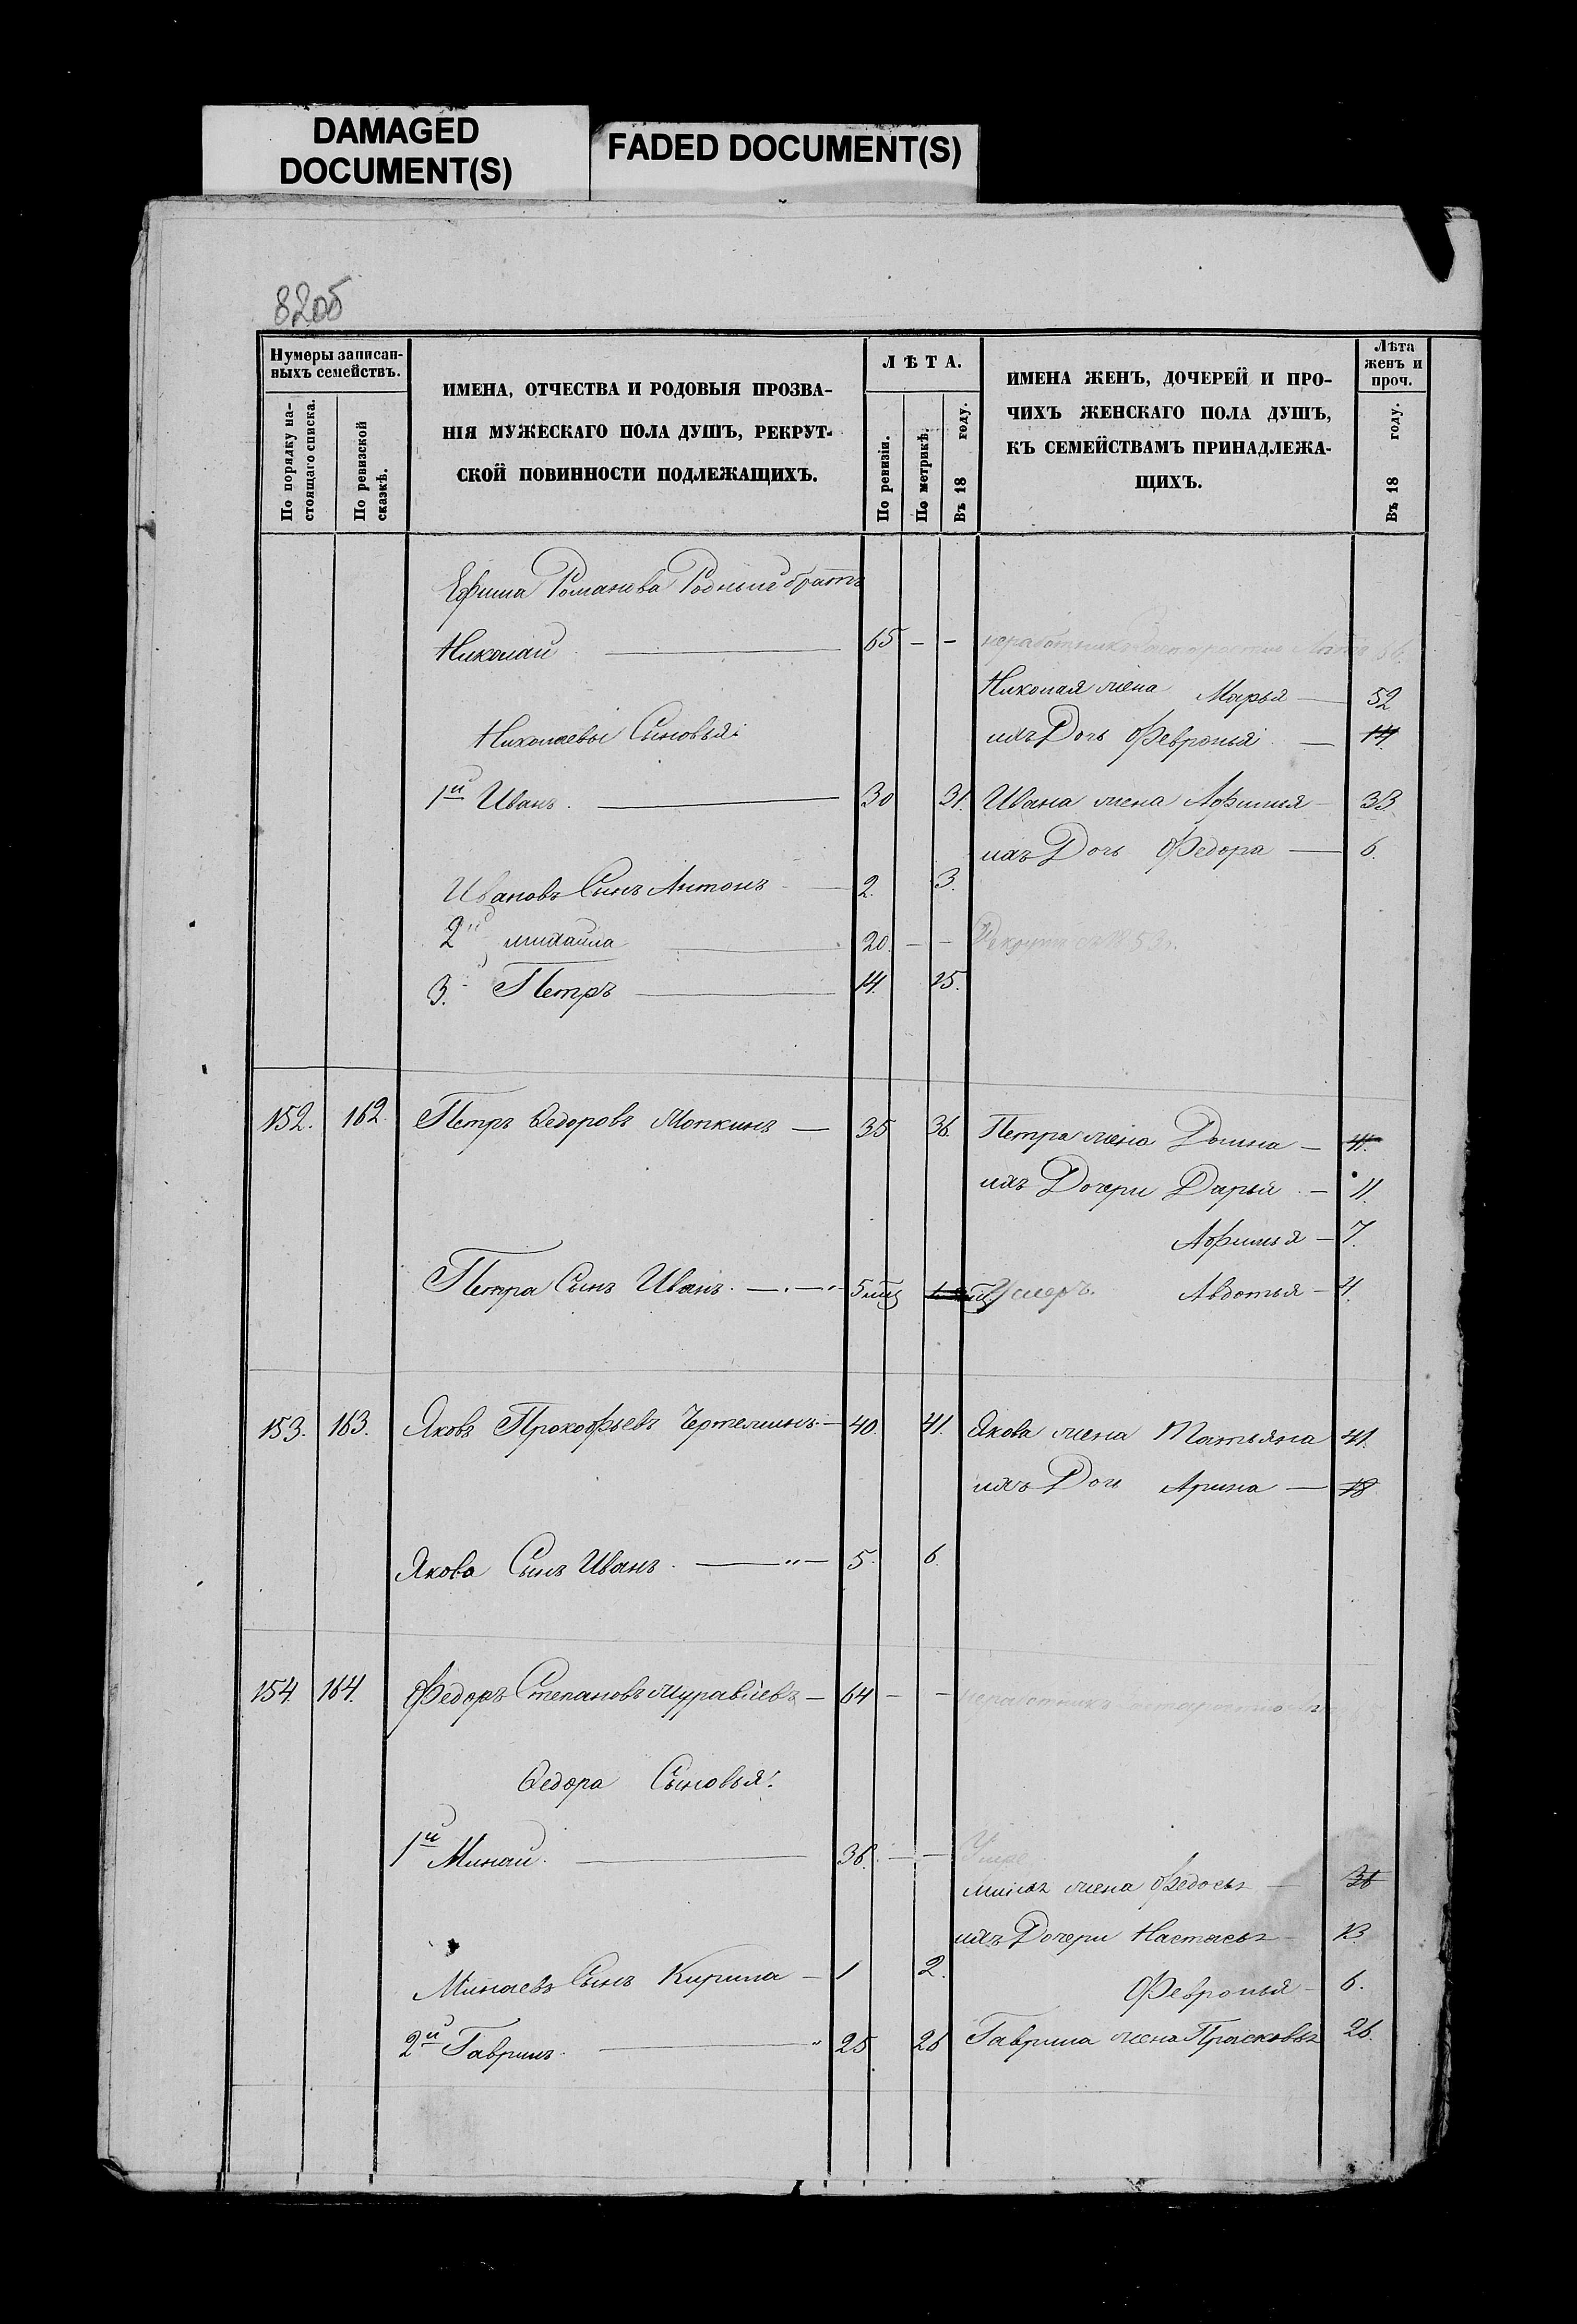 DAMAGED
DOCUMENT(S)
FADED DOCUMENT(S)
82об
Нумеры записан-
ныхъ семействъ.
По порядку на-
стоящаго списка.
По ревизской
сказкѣ.
ИМЕНА, ОТЧЕСТВА И РОДОВЫЯ ПРОЗВА-
НІЯ МУЖЕСКАГО ПОЛА ДУШЪ, РЕКРУТ-
СКОЙ ПОВИННОСТИ ПОДЛЕЖАЩИХЪ.
ЛѢТА.
По ревизіи.
По метрикѣ.
Въ 18 году.
ИМЕНА ЖЕНЪ, ДОЧЕРЕЙ И ПРО-
ЧИХЪ ЖЕНСКАГО ПОЛА ДУШЪ,
КЪ СЕМЕЙСТВАМЪ ПРИНАДЛЕЖА-
ЩИХЪ.
Лѣта
женъ и
проч.
Въ 18 году.
Ефима Романова Родный братъ
Николай — 65 — —
Николая жена Марья — 52
Николаевы Сыновья: ихъ Дочь Февронья — 14
1й Иванъ. — 30 31. Ивана жена Афимья 33
ихъ Дочь Федора — 6.
Ивановъ Сынъ Антонъ — 2. 3.
2й михайла — 20. — —
3.й Петръ — 14. 15.
152. 162. Петръ Ѳедоровъ — 35 36. Петра жена Домна — 41.
ихъ Дочери Дарья — 11.
Афимья — 7.
Петра Сынъ Иванъ. — 5 Умеръ. Авдотья — 4.
153. 163. Яковъ Прокофьевъ — 40. 41. Якова жена Татьяна 41.
ихъ Дочь Арина — 18.
Якова Сынъ Иванъ. — 5. 6.
154. 164. Федоръ Степановъ Муравьевъ — 64 — —
Ѳедора Сыновья:
1й Минай. — 36. — —
жена Федосья — 36
ихъ Дочери Настасья 13.
Минаевъ Сынъ Кирила — 1 2.
Февронья — 6.
2й Гаврилъ. — 25 26 Гаврила жена Прасковья 26.